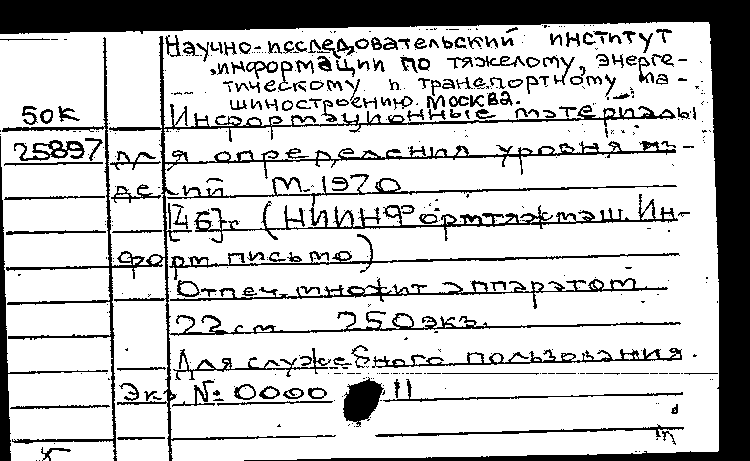 Научно-исследовательский институт
информации по тяжелому, энерге-
тическому и транспортному ма-
шиностроению. Москва.
50к
Информационные материалы
25897 для определения уровня из-
делий М. 1970
[46]с (НИИНФормтяжмаш. Ин-
форм. письмо)
Отпеч. множит аппаратом
22см 250экз.
Для служебного пользования.
Экз № 0000 11